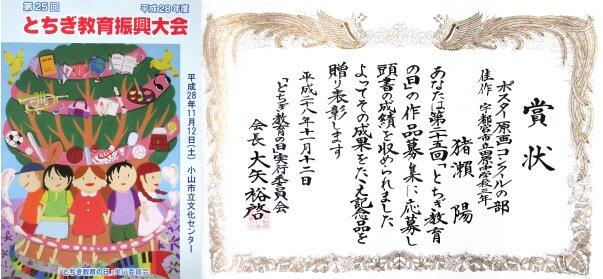 第25回
平成28年度
とちぎ教育振興大会
平成28年11月12日(土)
小山市立文化センター
「とちぎ教育の日」実行委員会
賞状
ポスター原画コンクールの部
佳作 宇都宮市立田原中学校三年
猪瀬 陽
あなたは第二十五回「とちぎ教育
の日」の作品募集に応募し
頭書の成績を収められました
よってその成果をたたえ記念品を
贈り表彰します
平成二十八年十一月十二日
「とちぎ教育の日」実行委員会
会長 大矢裕啓